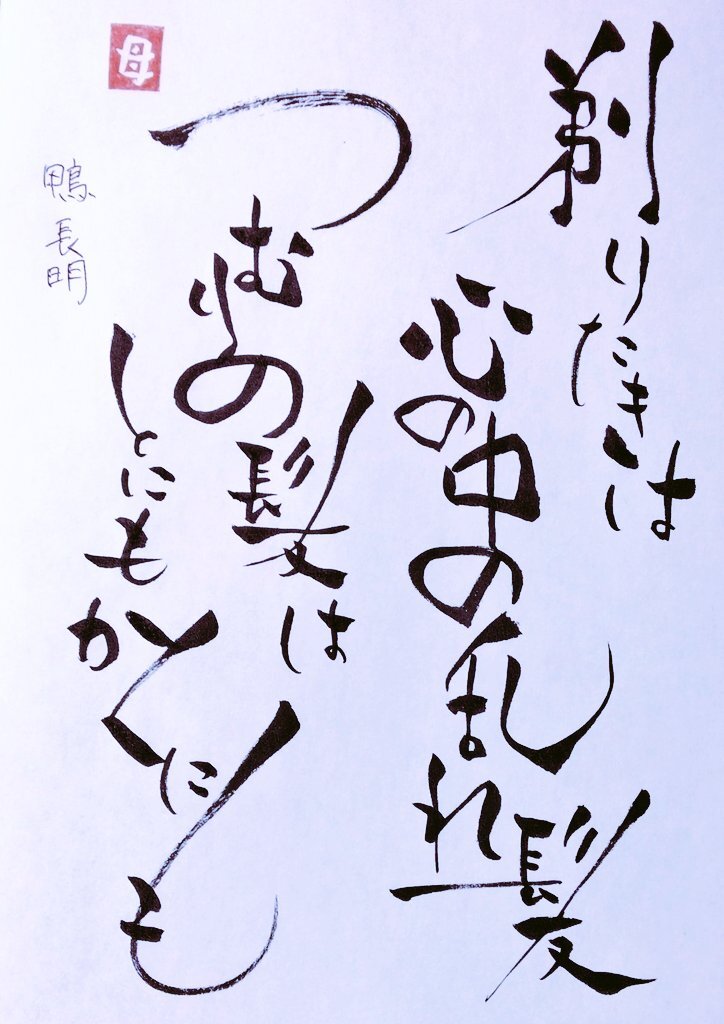 剃りたきは
心の中の乱れ髪
つむりの髪は
とにもかくにも
鴨長明